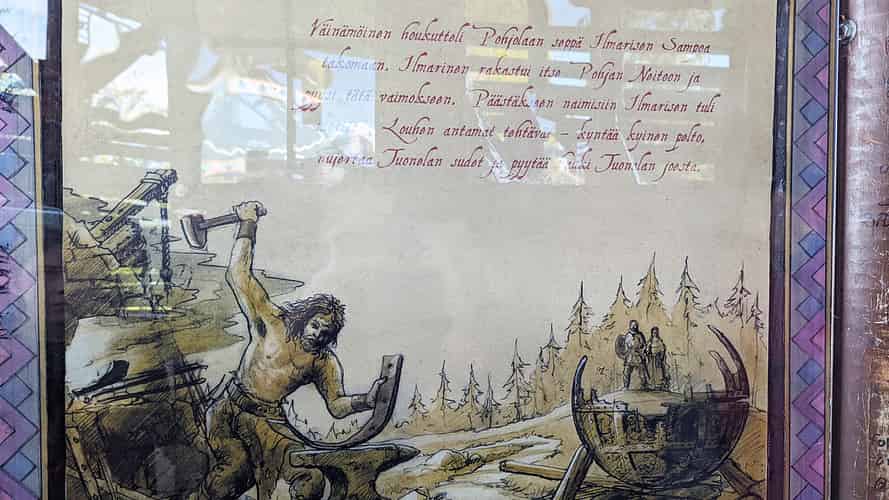 Väinämöinen houkutteli Pohjolaan seppä Ilmarisen Sampoa
takomaan. Ilmarinen rakastui itse Pohjan Neitoon ja
pyysi tätä vaimokseen. Päästäkseen naimisiin Ilmarisen tuli
Louhen antamat tehtävät – kyntää kyinen pelto,
nujertaa Tuonelan sudet ja pyytää hauki Tuonelan joesta.